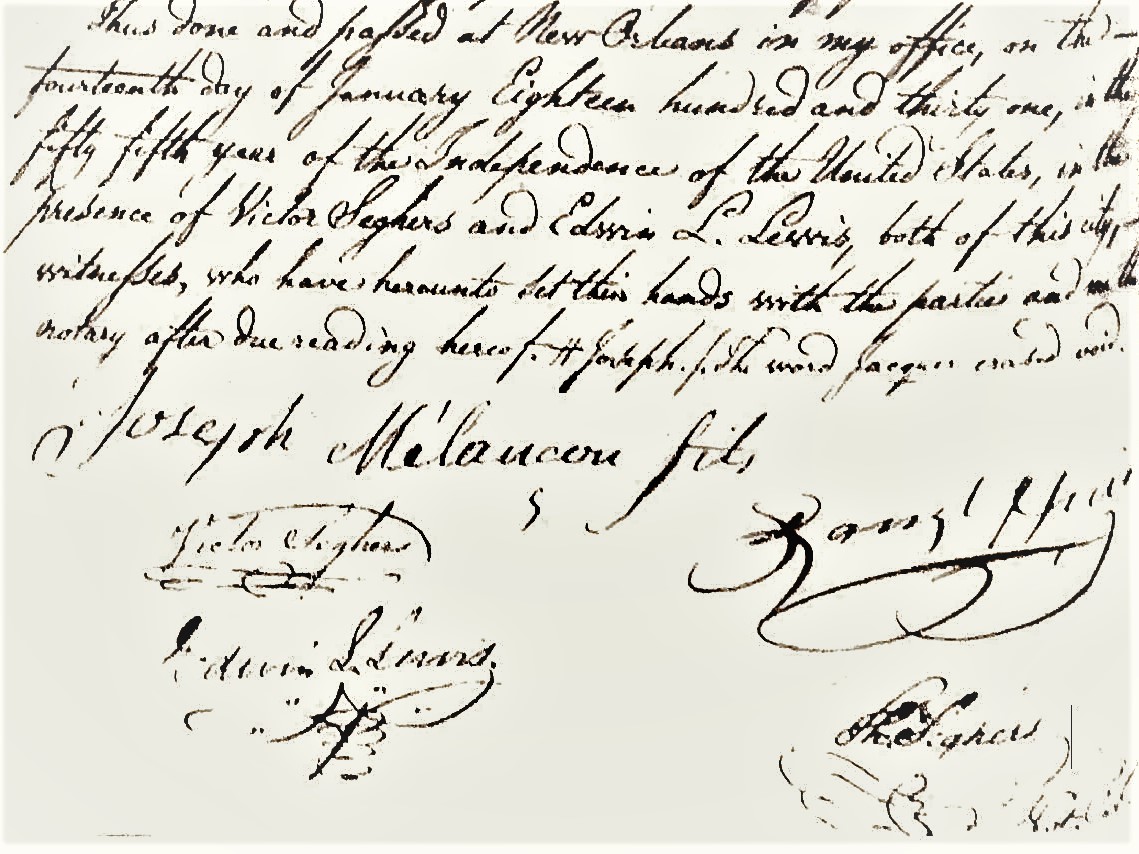 Thus done and passed at New Orleans in my office, on the
fourteenth day of January Eighteen hundred and thirty one, in the
fifty fifth year of the Independence of the United States, in the
presence of Victor Seghers and Edwin L. Lewis, both of this city,
witnesses, who have hereunto set their hands with the parties and me the
notary after due reading hereof. # Joseph. /. The word Jacques erased void.
Joseph Mélancon fils
Victor Seghers
Edwin L. Lewis
Th. Seghers
Not. Pub.